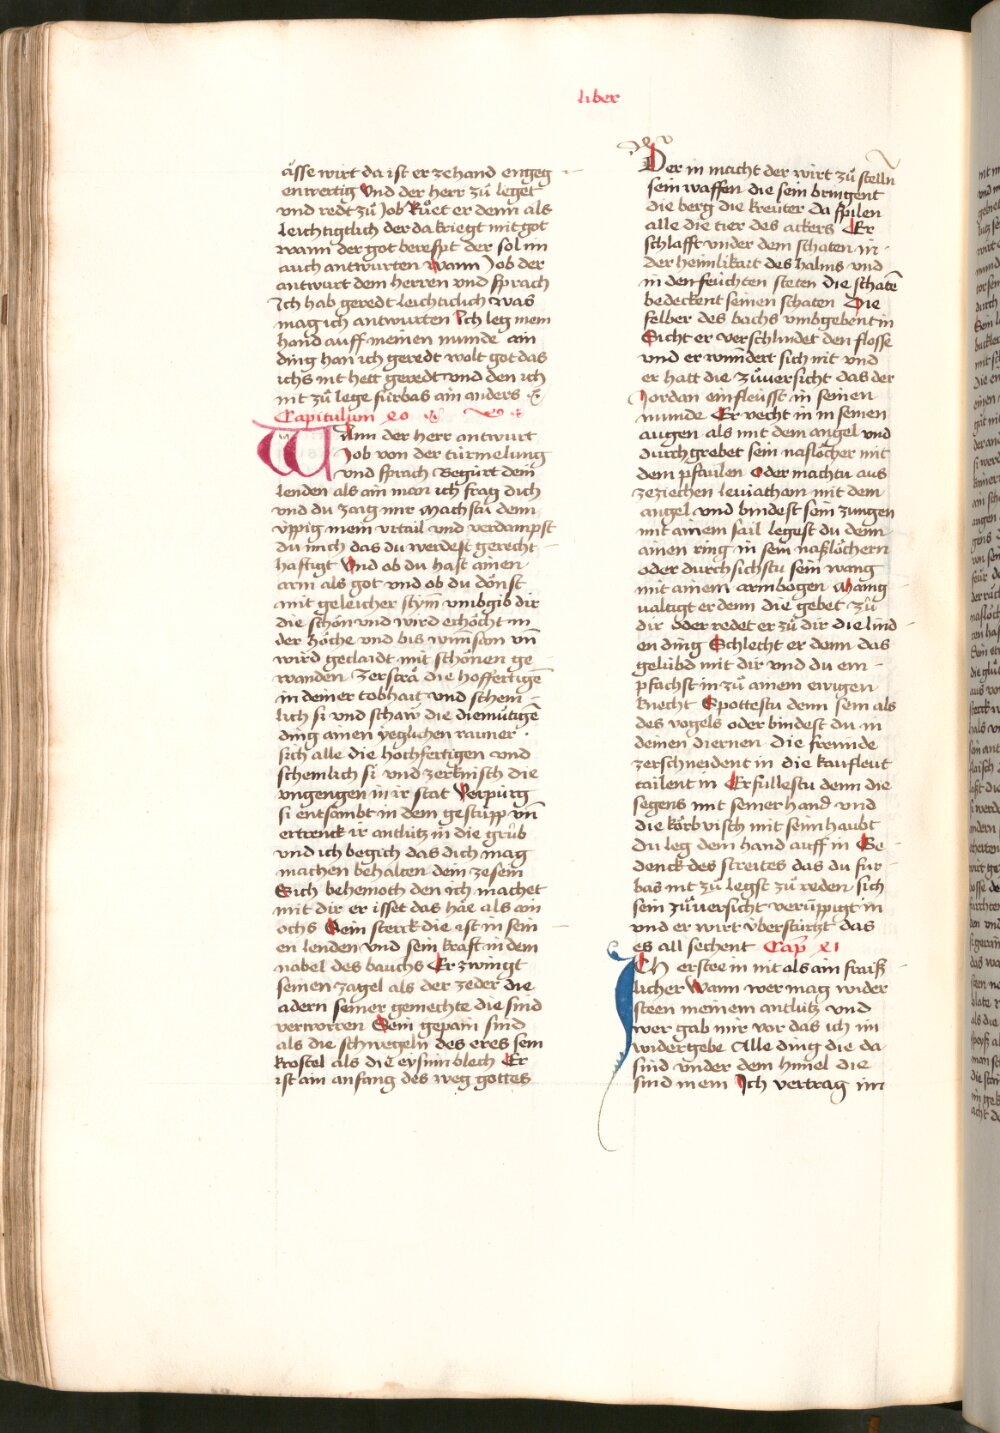 liber
ásse wirt da ist er zehand engeg
enwertig Vnd der herr zů leget
vnd redt zů Job Růet er denn als
leichtigtlich der da kriegt mit got
wann der got berefpt der sol im
auch antwurten Wann Job der
antwurt dem herren vnd sprach
Ich hab geredt leichticlich was
mag ich antwurten Ich leg mein
hand auff meinen munde ain
ding han ich geredt wolt got das
ichs nit hett geredt vnd den ich
nit zů lege fúrbas ain anders
Capitulum xo
Wann der herr antwurt
Job von der túrmelung
vnd sprach Begúrt dein
lenden als ain man ich frag dich
vnd du zaig mir Machstu denn
vppig mein vrtail vnd verdampst
du mich das du werdest gerecht
haftigt Vnd ob du hast ainen
arm als got vnd ob du dónst
mit geleicher stym̄ vmbgib dir
die schón vnd wird erhócht in
der hóche vnd bis wun̄sam vn̄
wird geclaidt mit schónen ge
wanden zerströ die hoffertigē
in deiner tobhait vnd schem
lich si vnd schaw die diemútigē
ding ainen yeglichen rainer
sich alle die hochfertigen vnd
schemlich si vnd zerknisch die
vngengen in ir stat Verpúrg
si entsambt in dem gestúpp vn̄
ertrenck ir antlútz in die grůb
vnd ich begich das dich mag
machen behalten dein zesem
Sich behemoch den ich machet
mit dir er isset das háe als ain
ochs Sein sterck die ist in sein
en lenden vnd sein kraft in dem
nabel des bauchs Er zwingt
seinen zagel als der zeder die
adern seiner gemechte die sind
verworren Sein gepain sind
als die schwegeln des eres sein
krostel als die eysinn blech Er
ist ain anfang des weg gottes
Der in macht der wirt zů stelln
sein waffen die sein bringent
die berg die kreúter da spilen
alle die tier des ackers Er
schlafft vnder dem schaten in
der heimlikait des halms vnd
in den feúchten steten die schatē
bedeckent seinen schaten Die
felber des bachs vmbgebent in
Sicht er verschlindet den flosse
vnd er wundert sich nit vnd
er hatt die zůversicht das der
Jordan einfleússt in seinen
munde Er vecht in in seinen
augen als mit dem angel vnd
durchgrebet sein naslócher mit
dem pfáulen Oder machtu aus
zeziechen leuiathan mit dem
angel vnd bindest sein zungen
mit ainem sail legest du denn
ainen ring in sein naßlóchern
oder durchsichstu sein wang
mit ainem armbogen Manig
ualtigt er denn die gebet zů
dir oder redet er zů dir die lind
en ding Schlecht er dann das
gelúbd mit dir vnd du em
pfachst in zů ainem ewigen
knecht Spottestu denn sein als
des vogels oder bindest du in
deinen diernen die freunde
zerschneident in die kaufleút
tailent in Erfúllestu denn die
segens mit seiner hand vnd
die kórb visch mit seim haubt
Du leg dein hand auff in Ge
denck des streites das du fúr
bas nit zů legst zů reden sich
sein zůuersicht verúppigt in
vnd er wirt vberstúrtzt das
es all sechent Cap̄ xli
Ich erstee in nit als ain fraiß
licher Wann wer mag wider
steen meinem antlútz vnd
wer gab mir vor das ich im
widergebe Alle ding die da
sind vnder dem himel die
sind mein Ich vertrag im